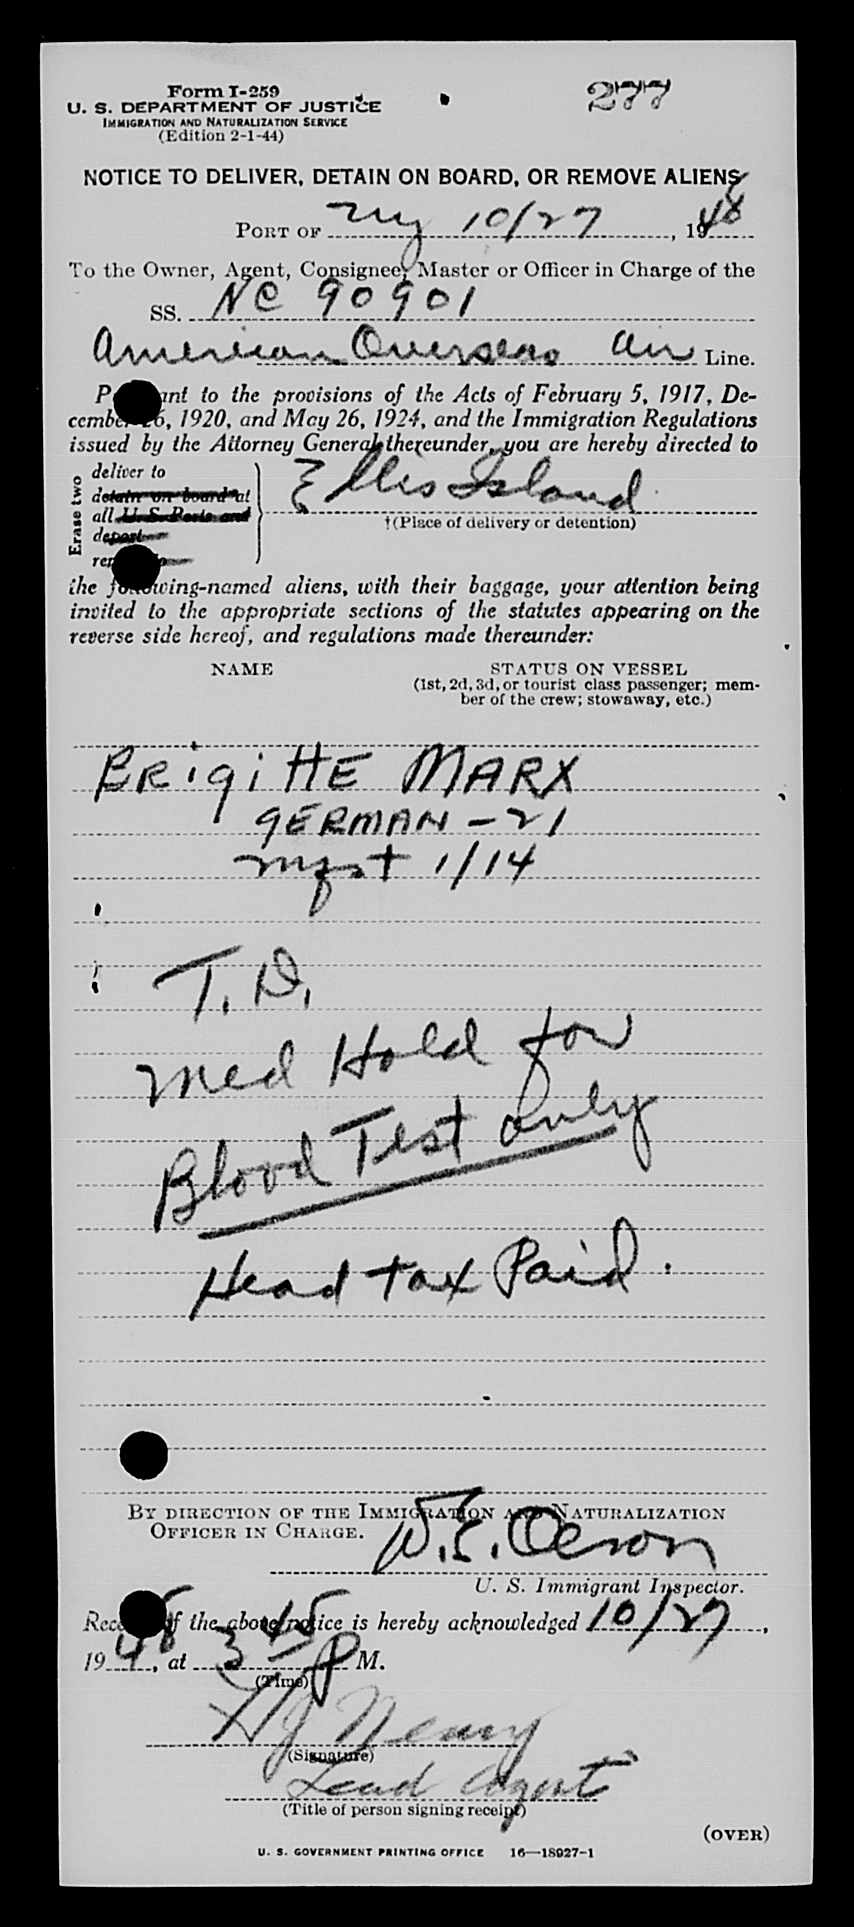 Form I-259
277
U. S. DEPARTMENT OF JUSTICE
IMMIGRATION AND NATURALIZATION SERVICE
(Edition 2-1-44)
NOTICE TO DELIVER, DETAIN ON BOARD, OR REMOVE ALIENS
PORT OF NY 10/27, 1948
To the Owner, Agent, Consignee, Master or Officer in Charge of the
SS. NC 90901
American Overseas Air Line.
Pursuant to the provisions of the Acts of February 5, 1917, De-
cember 26, 1920, and May 26, 1924, and the Immigration Regulations
issued by the Attorney General thereunder, you are hereby directed to
Erase two
deliver to
detain on board at
all U. S. Ports and
deport
Ellis Island
†(Place of delivery or detention)
the following-named aliens, with their baggage, your attention being
invited to the appropriate sections of the statutes appearing on the
reverse side hereof, and regulations made thereunder:
NAME STATUS ON VESSEL
(1st, 2d, 3d, or tourist class passenger; mem-
ber of the crew; stowaway, etc.)
BRigiTTE MARX
GERMAN - 21
1/14
T. D.
Med Hold for
Blood Test only
Head tax Paid.
BY DIRECTION OF THE IMMIGRATION AND NATURALIZATION
OFFICER IN CHARGE.
U. S. Immigrant Inspector.
Receipt of the above notice is hereby acknowledged 10/27,
1948, at 3 45 P M.
(Time)
(Signature)
Lead Agent
(Title of person signing receipt)
(OVER)
U. S. GOVERNMENT PRINTING OFFICE 16—18927-1